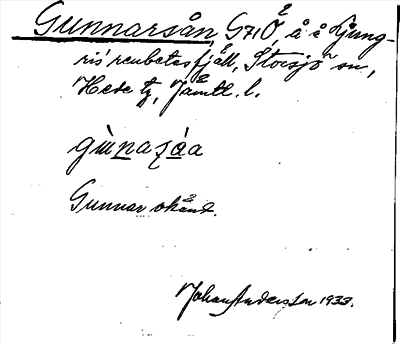 Gunnarsån, G71Ö, å å Ljung-
ris' renbetesfjäll, Storsjö sn,
Hede tg, Jämtl. l.
Gunnar okänd.
Johan Andersson 1933.